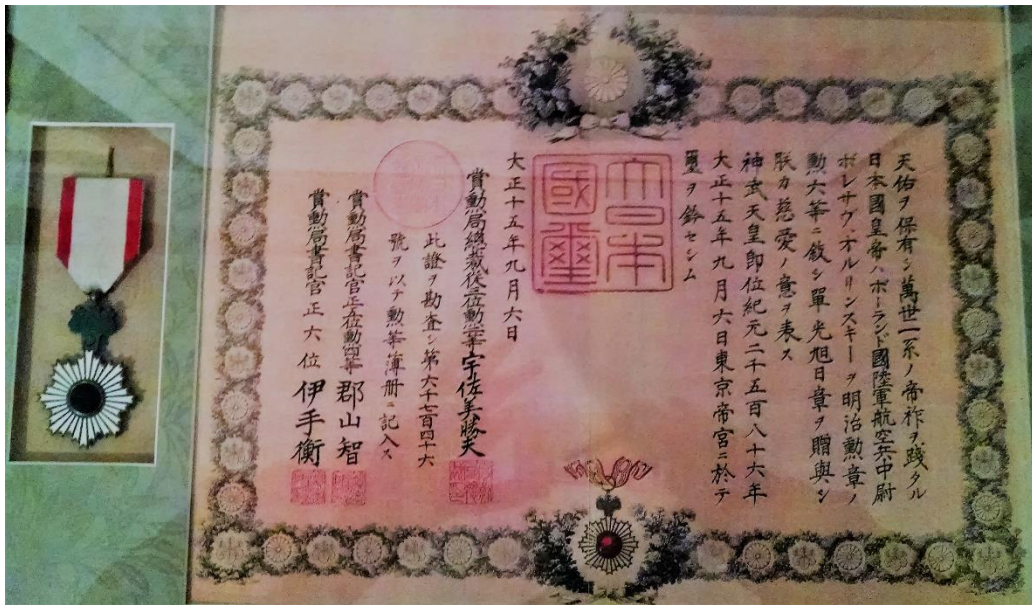 天佑ヲ保有シ萬世一系ノ帝祚ヲ践タル
日本國皇帝ハポーランド國陸軍航空兵中尉
ボレサヴ、オルリンスキーヲ明治勲章ノ
勲六等ニ敘シ單光旭日章ヲ贈與シ
朕カ慈愛ノ意ヲ表ス
神武天皇即位紀元二千五百八十六年
大正十五年九月六日東京帝宮ニ於テ
璽ヲ鈐セシム
大日本國璽
大正十五年九月六日
賞勲局總裁從三位勲二等宇佐美勝夫
此證ヲ勘査シ第六千七百四十六
號ヲ以テ勲等簿册ニ記入ス
賞勲局書記官正五位勲四等郡山智
賞勲局書記官正六位伊手衡